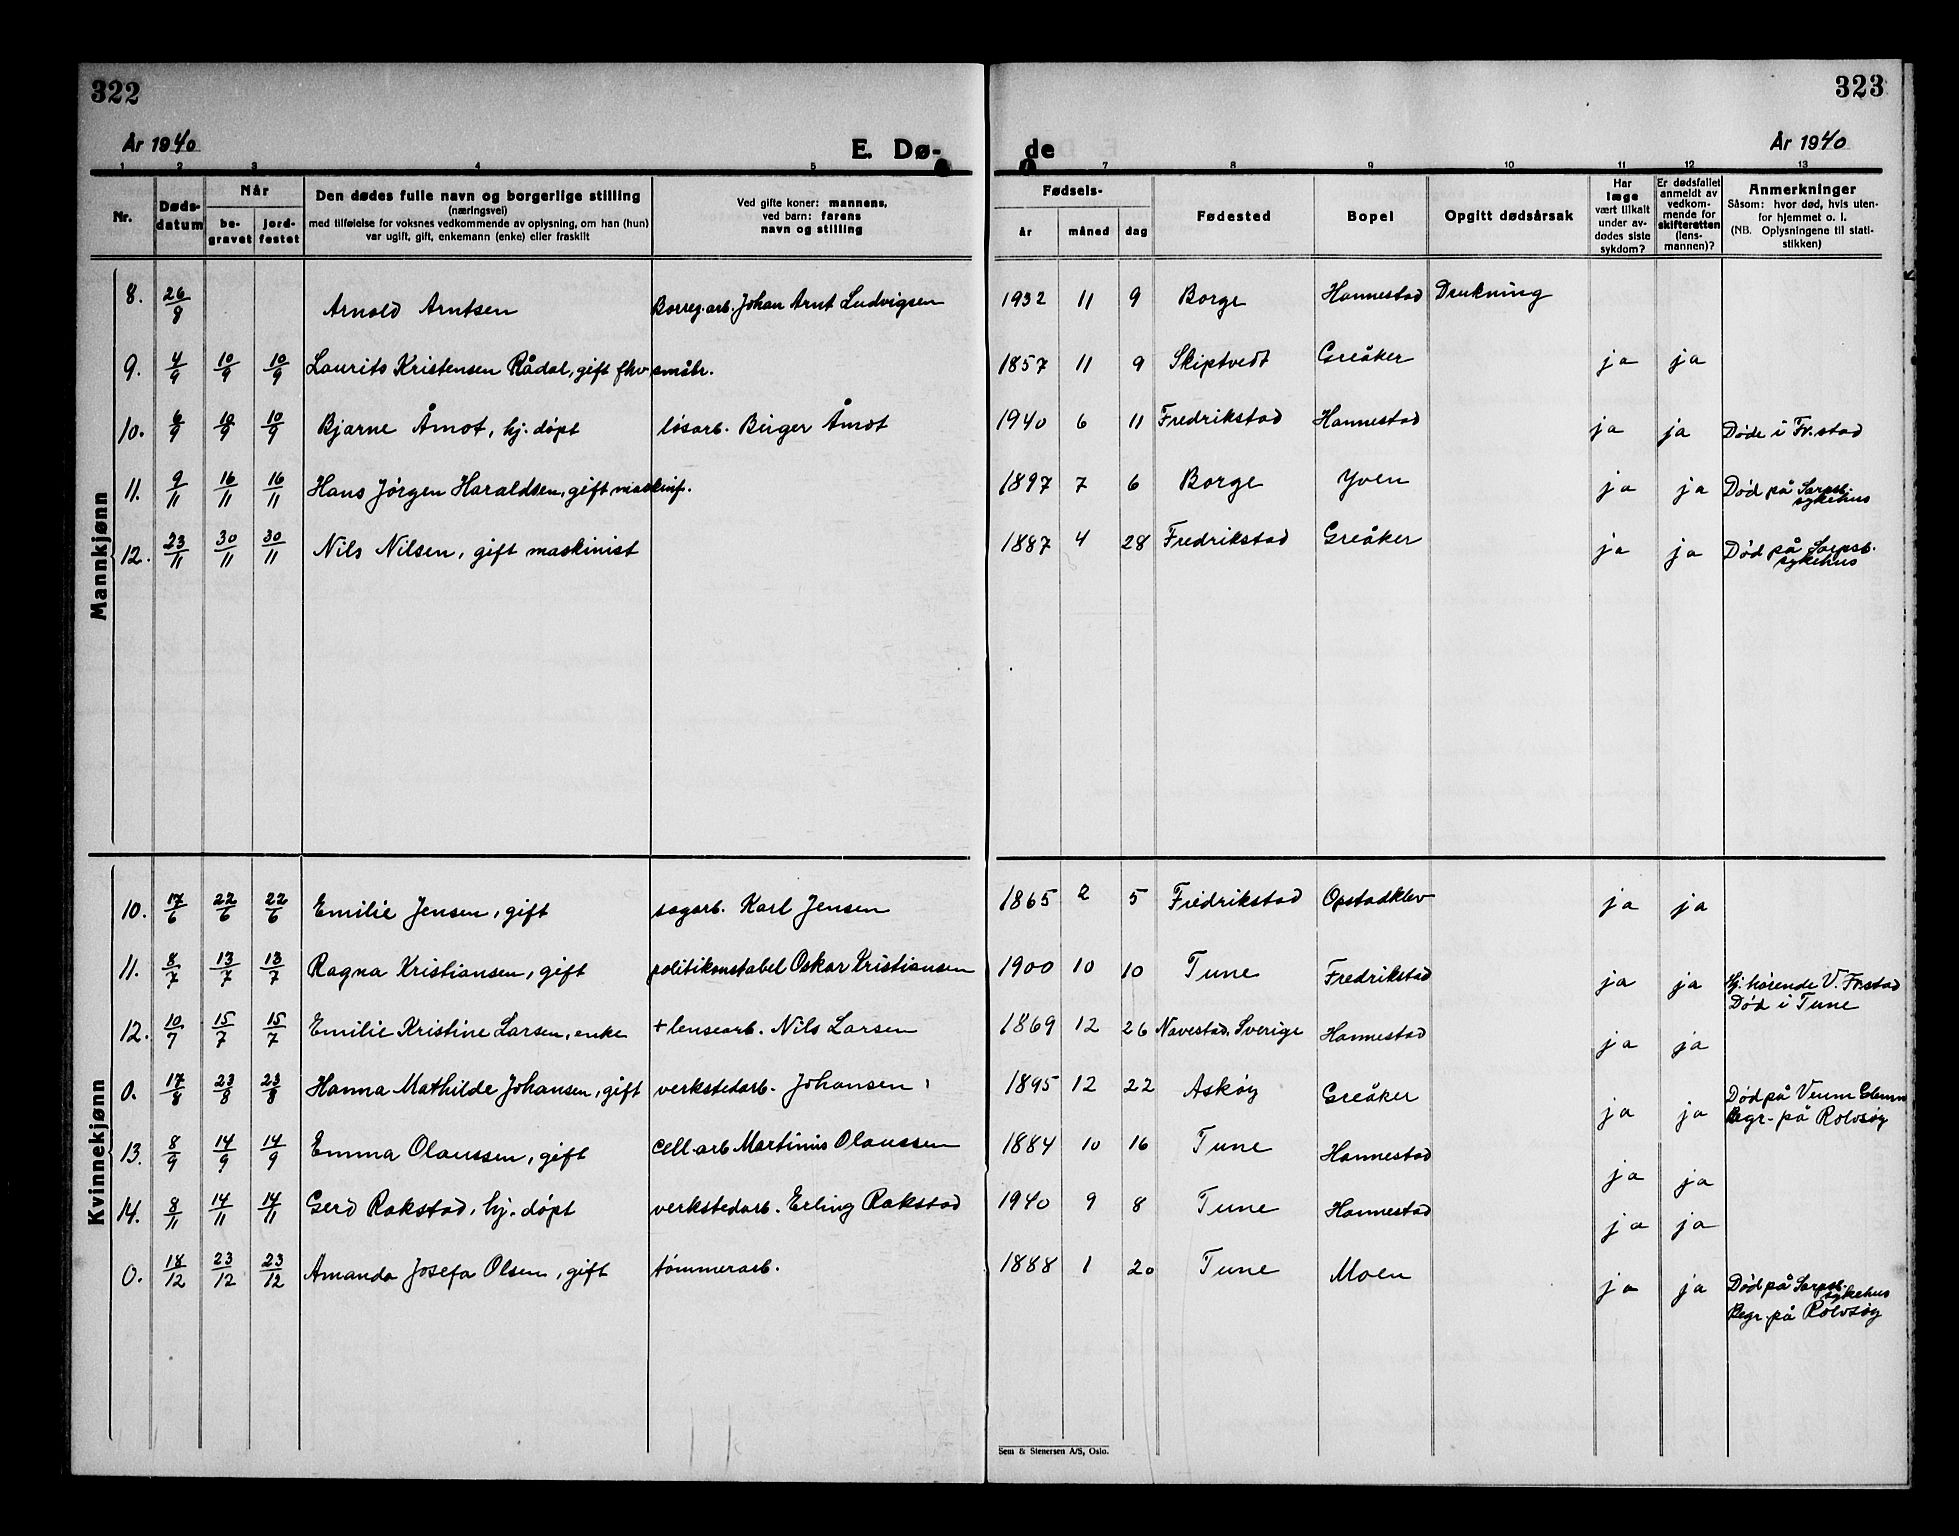 322
323
År 1940
E. Dø-
de
År 1940
1 2 3 4 5 7 8 9 10 11 12 13
Nr.
Døds-
datum
Når
be-
gravet
jord-
festet
Den dødes fulle navn og borgerlige stilling
(næringsvei)
med tilføielse for voksnes vedkommende av oplysning, om han (hun)
var ugift, gift, enkemann (enke) eller fraskilt
Ved gifte koner: mannens,
ved barn: farens
navn og stilling
Fødsels-
år måned dag
Fødested
Bopel
Opgitt dødsårsak
Har
læge
vært tilkalt
under av-
dødes siste
sykdom?
Er dødsfallet
anmeldt av
vedkom-
mende for
skifteretten
(lens-
mannen)?
Anmerkninger
Såsom: hvor død, hvis uten-
for hjemmet o. l.
(NB. Oplysningene til stati-
stikken)
Mannkjønn
8. 26/8 Arnold Arntsen Borreg.arb. Johan Arnt Ludvigsen 1932 11 9 Borge Hannestad Drukning
9. 4/9 10/9 10/9 Laurits Kristensen Rådal, gift fhv småbr. 1857 11 9 Skiptvedt Greåker ja ja
10. 6/9 10/9 10/9 Bjarne Åmot, hj. døpt løsarb. Birger Åmot 1940 6 11 Fredrikstad Hannestad ja ja Døde i Fr.stad
11. 9/11 16/11 16/11 Hans Jørgen Haraldsen, gift maskinf. 1897 7 6 Borge Yven ja ja Død på Sarpsb.
sykehus
12. 23/11 30/11 30/11 Nils Nilsen, gift maskinist 1887 4 28 Fredrikstad Greåker ja ja Død på Sarpsb.
sykehus
Kvinnekjønn
10. 17/6 22/6 22/6 Emilie Jensen, gift sagarb. Karl Jensen 1865 2 5 Fredrikstad Opstadklev ja ja
11. 8/7 13/7 13/7 Ragna Kristiansen, gift politikonstabel Oskar Kristiansen 1900 10 10 Tune Fredrikstad ja ja Hj. hørende V. Fr.stad
Død i Tune
12. 10/7 15/7 15/7 Emilie Kristine Larsen, enke + lensearb. Nils Larsen 1869 12 26 Navestad, Sverige Hannestad ja ja
0. 17/8 23/8 23/8 Hanna Mathilde Johansen, gift verkstedarb. Johansen 1895 12 22 Askøy Greåker ja ja Død på Veum
Begr. på Rolvsøy
13. 8/9 14/9 14/9 Emma Olaussen, gift cell.arb Martinius Olaussen 1884 10 16 Tune Hannestad ja ja
14. 8/11 14/11 14/11 Gerd Rakstad, hj. døpt verkstedarb. Erling Rakstad 1940 9 8 Tune Hannestad ja ja
0. 18/12 23/12 23/12 Amanda Josefa Olsen, gift tømmerarb. 1888 1 20 Tune Moen ja ja Død på Sarpsb.
sykehus
Begr. på Rolvsøy
Sem & Stenersen A/S, Oslo.